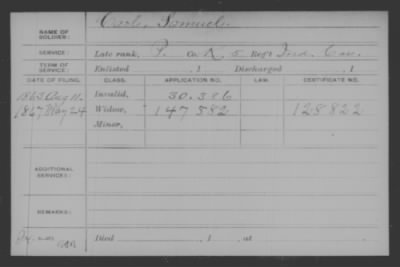 NAME OF SOLDIER: Samuel
SERVICE: Late rank, P. Co. A, 5 Reg't Ind. Cav.
TERM OF SERVICE: Enlisted , 1 Discharged , 1
DATE OF FILING. CLASS. APPLICATION NO. LAW. CERTIFICATE NO.
1863 Aug 11. Invalid, 30.386
1867 May 24 Widow, 147582 128822
Minor,
ADDITIONAL SERVICES:
REMARKS:
Died , 1 , at